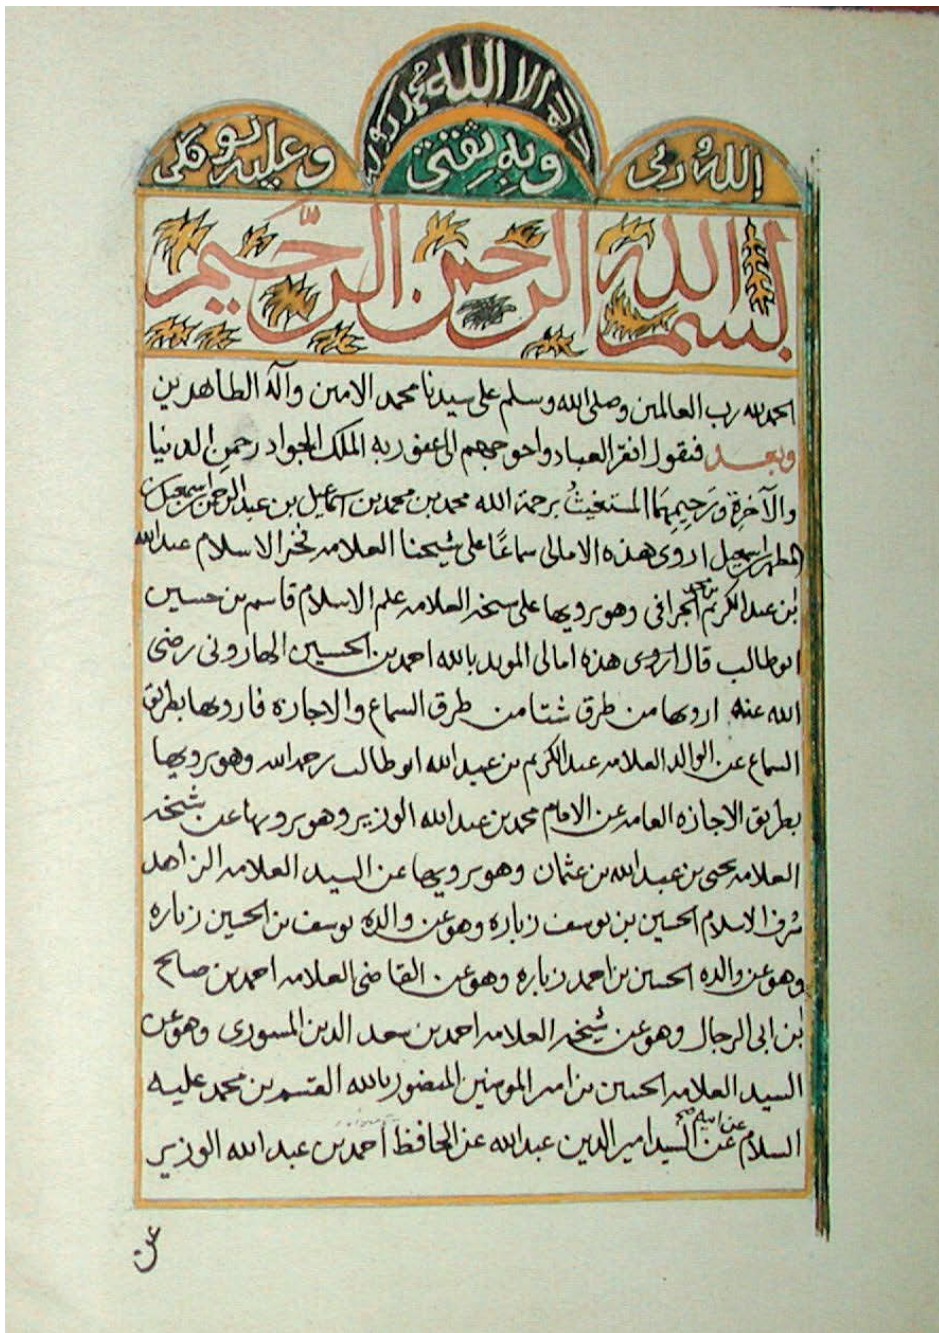 لا اله الا الله محمد رسول
الله ربي
وبه ثقتي
وعليه توكلي
بسم الله الرحمن الرحيم
الحمد لله رب العالمين وصلى الله وسلم على سيدنا محمد الامين وآله الطاهرين
وبعد فنقول افقر العباد واحوجهم الى عفو ربه الملك الجواد رحمن الدنيا
والآخرة ورحيمهما المستغيث برحمة الله محمد بن محمد بن اسماعيل بن عبد الرحمن اسمعيل
المطهر اسمعيل اروي هذه الامالي سماعًا على شيخنا العلامه فخر الاسلام عبد الله
ابن عبد الكريم بن محمد الجرافي وهو يرويها على شيخه العلامه علم الاسلام قاسم بن حسين
ابو طالب قال اروي هذه امالي المويد بالله احمد بن الحسين الهاروني رضي
الله عنه ارويها من طرق شتا من طرق السماع والاجازه فارويها بطريق
السماع عن الوالد العلامه عبد الكريم بن عبد الله ابو طالب رحمه الله وهو يرويها
بطريق الاجازه العامه عن الامام محمد بن عبد الله الوزير وهو يرويها عن شيخه
العلامه يحيى بن عبد الله بن عثمان وهو يرويها عن السيد العلامه الزاهد
شرف الاسلام الحسين بن يوسف زباره وهو عن والده يوسف بن الحسين زباره
وهو عن والده الحسين بن احمد زباره وهو عن القاضي العلامه احمد بن صالح
ابن ابي الرجال وهو عن شيخه العلامه احمد بن سعد الدين المسوري وهو عن
السيد العلامه الحسين بن امير المومنين المنصور بالله القسم بن محمد عليه
السلام عن ابيه صح عن السيد امير الدين عبد الله عن الحافظ احمد بن عبد الله الوزير
عن